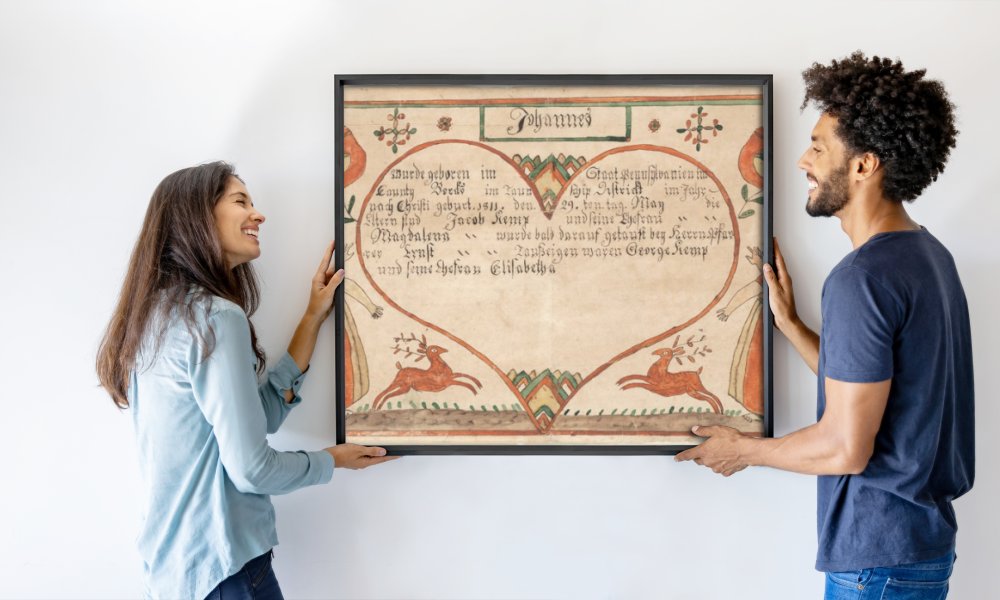 Johannes
wurde geboren im Staat Pennsylvanien im
County Berks im Taun schip Districkt im Jahr
nach Christi geburt. 1811. den. 29. ten. tag. May die
Eltern sind Jacob Kemp und seine Ehefrau " "
Magdalena " " wurde bald darauf getauft bey Herrn Pfar
rer Ernst " " Taufzeigen waren George Kemp
und seine Ehefrau Elisabetha